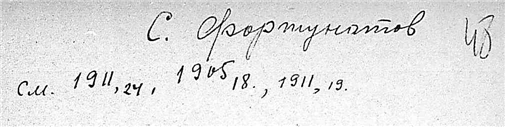 С. Фортунатов
см. 1911,24, 1905 18., 1911, 19.